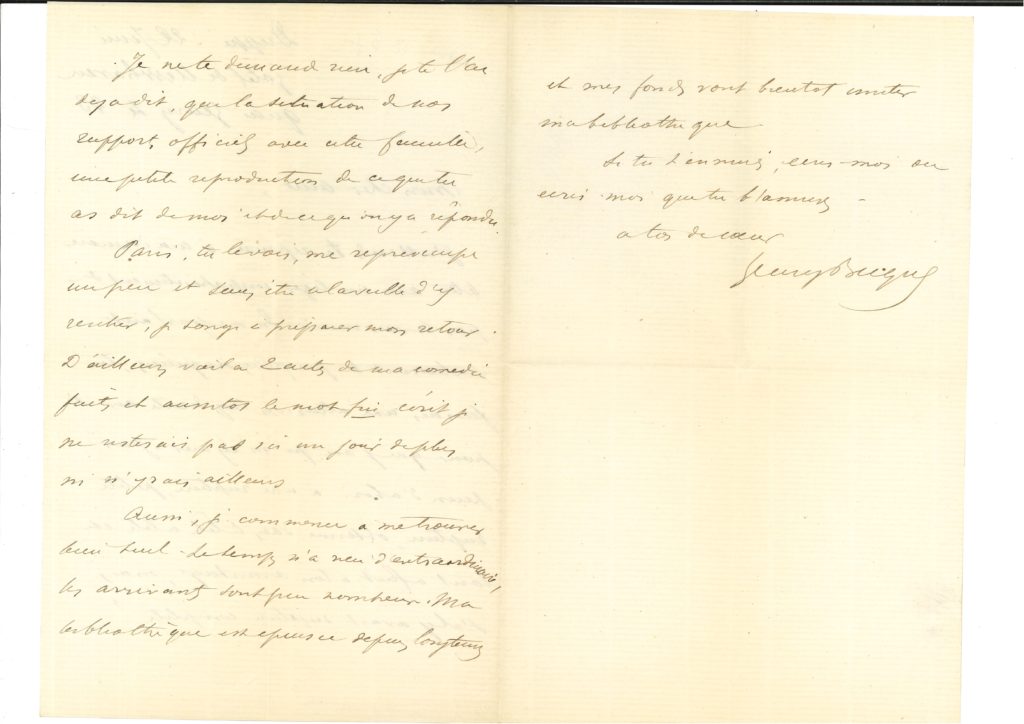 Je ne te demand rien, je te l'ai
deja dit, que la situation de nos
rapports officiels avec cette famille,
une petite reproduction de ce que tu
as dit de moi et de ce qu'on y a répondu.
Paris, tu le vois, me repreoccupe
un peu et sans être a la veille d'y
rentrer, je songe a préparer mon retour.
D'ailleurs voila 2 actes de ma comedie
faits et aussitot le mot fin écrit je
ne resterais pas ici un jour de plus
ni n'irais ailleurs
Aussi, je commence a me trouver
bien seul. Le temps n'a rien d'extraordinaire,
les arrivants sont peu nombreux. Ma
bibliothèque est epuisee depuis longtemps
et mes fonds vont bientot imiter
ma bibliotheque
Si tu t'ennuies, ecris-moi ou
ecris-moi que tu t'amuses -
a toi de cœur
Henry Becque